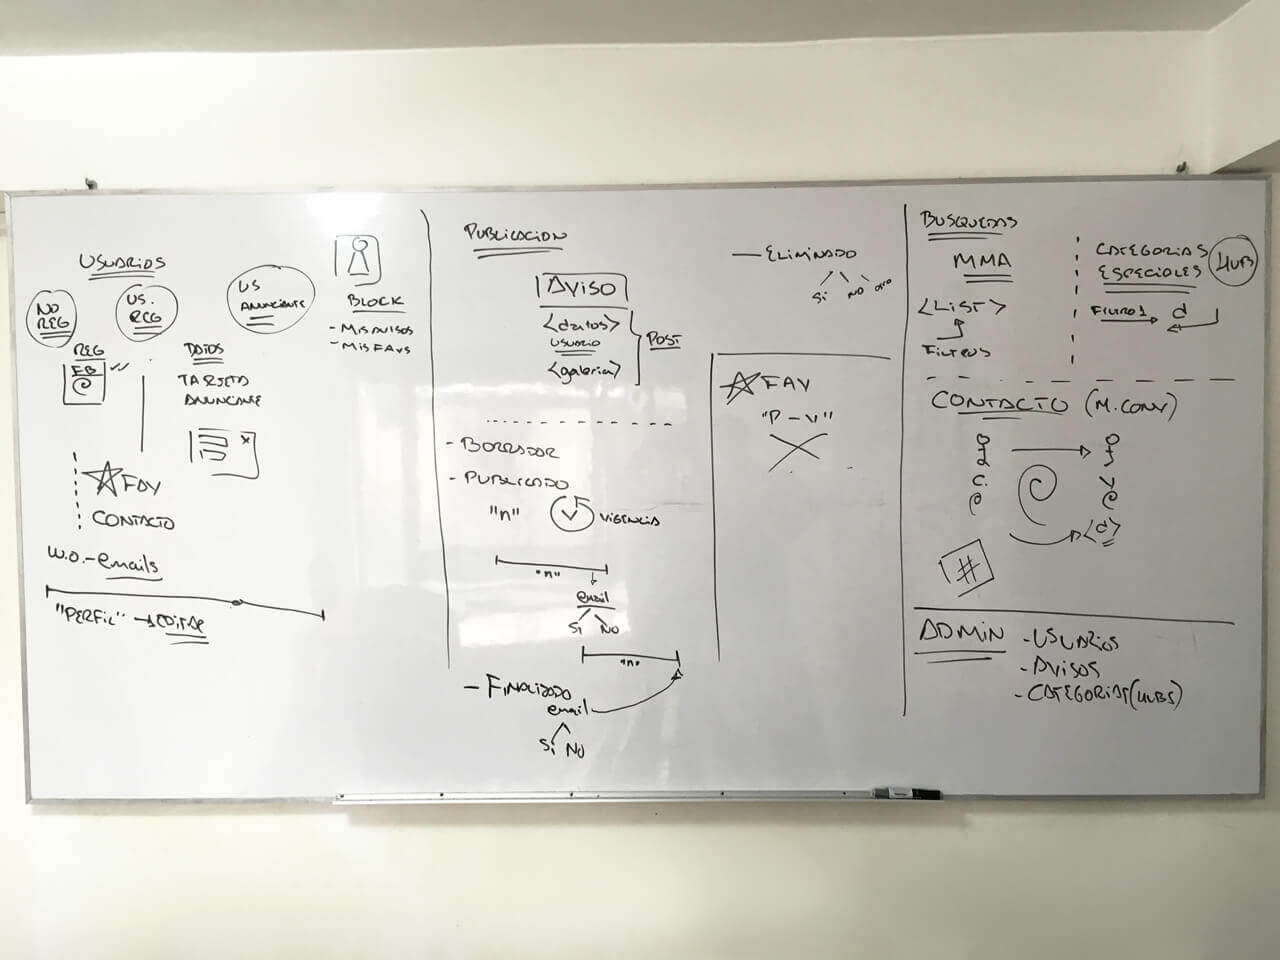 USUARIOS
NO REG
US. REG
US ANUNCIANTE
REG
FB
DATOS
TARJETA
ANUNCIANTE
X
FAV
CONTACTO
W.O.-emails
"PERFIL" → EDITAR
BLOCK
- MIS AVISOS
- MIS FAVS
PUBLICACION
AVISO
<datos>
USUARIO
<galeria>
POST
- BORRADOR
- PUBLICADO
"n"
VIGENCIA
"n"
email
SI NO
"n"
- FINALIZADO
email
SI NO
- ELIMINADO
SI NO OTRO
FAV
"P-V"
BUSQUEDAS
MMA
<LIST>
FILTROS
CATEGORIAS
ESPECIALES
HUBS
FILTRO 1 → d
CONTACTO (M. CONV)
C.
V
<d>
#
ADMIN
- USUARIOS
- AVISOS
- CATEGORIAS (HUBS)